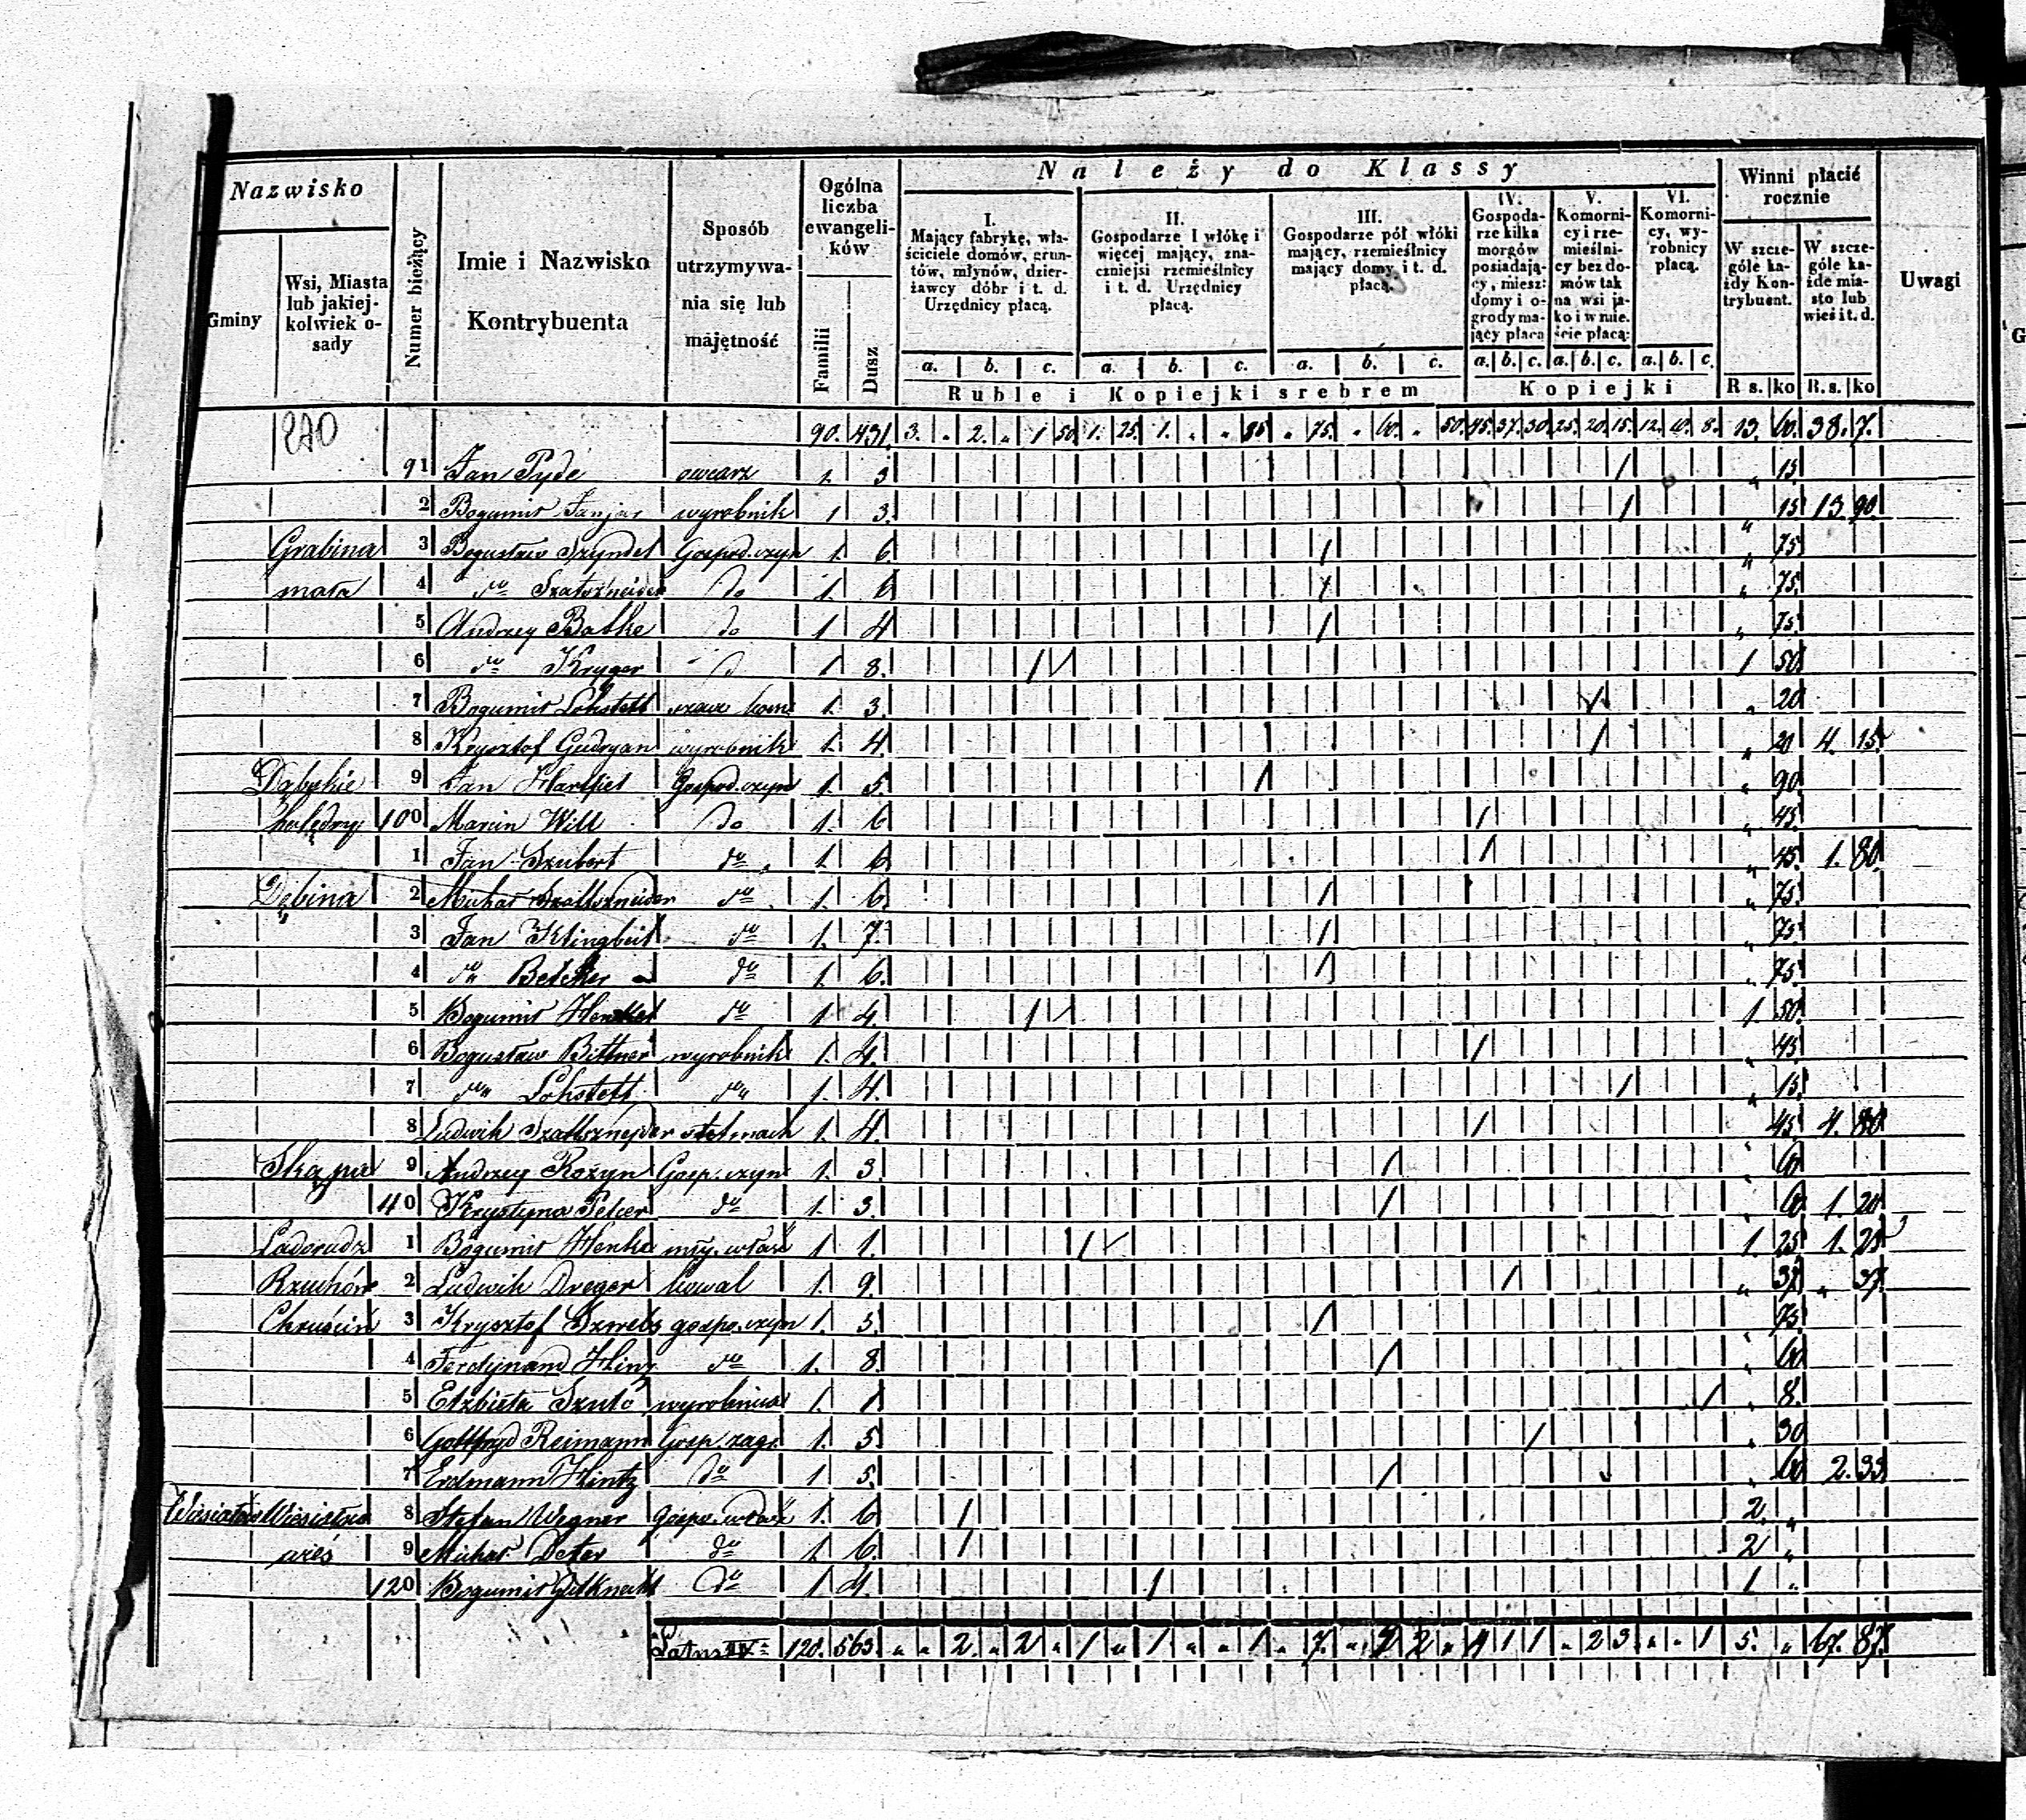 Nazwisko
Gminy
Wsi, Miasta lub jakiejkolwiek osady
Numer bieżący
Imie i Nazwisko Kontrybuenta
Sposób utrzymywania się lub majętność
Ogólna liczba ewangelików
Familii
Dusz
Należy do Klassy
I. Mający fabrykę, właściciele domów, gruntów, młynów, dzierżawcy dóbr i t. d. Urzędnicy płacą.
II. Gospodarze I włókę i więcej mający, znaczniejsi rzemieślnicy i t. d. Urzędnicy płacą.
III. Gospodarze pół włóki mający, rzemieślnicy mający domy i t. d. płacą.
IV. Gospodarze kilka morgów posiadający, miesz: domy i ogrody mający płacą
V. Komornicy i rzemieślnicy bez domów tak na wsi jako i w mieście płacą:
VI. Komornicy, wyrobnicy płacą.
a. b. c. a. b. c. a. b. c. a. b. c. a. b. c. a. b. c.
Ruble i Kopiejki srebrem
Kopiejki
Winni płacić rocznie
W szczególe każdy Kontrybuent.
W szczególe każde miasto lub wieś i t. d.
R s. ko R. s. ko
Uwagi
270
90. 431. 3. „ 2. „ 1 50 1. 25. 1. „ „ 85 „ 75. „ 60. „ 50. 45. 37. 30. 25. 20. 15. 12. 10. 8. 13. 60. 38. 7.
91 Jan Pyde owcarz 1. 3 1 „ 15.
2 Bogumir wyrobnik 1 3. 1 „ 15 13 90.
Grabina 3 Bogusław Szyndel Gospod. czyn 1. 6. 1 „ 75
mała 4 do Szatsznaider do 1. 6 1 „ 75.
5 Andrzey Batke do 1 4 1 „ 75.
6 do Kryger do 1. 8. 1 1 50.
7 Bogumir Lohstett kom 1. 3. 1 „ 20
8 Krysztof Gudryan wyrobnik 1. 4. 1 „ 20 4. 15.
9 Jan Gospod. czyn 1. 5. 1 „ 90.
holędry 100 Marcin Will do 1. 6 1 „ 45.
1 Jan Szubert do 1. 6 1 „ 45. 1. 80.
Dębina 2 Michał Szattsznaider do 1. 6. 1 „ 75.
3 Jan Klingbeil do 1. 7. 1 „ 75.
4 do Betcher do 1. 6. 1 „ 75.
5 Bogumir do 1 4. 1 1. 50.
6 Bogusław Bittner wyrobnik 1. 4. 1 „ 45
7 do Lohstett do 1. 4. 1 „ 15.
8 Ludwik Szattsznejder stelmach 1. 4. 1 45 4. 80
Skąpa 9 Andrzey Rozyn Gosp. czyn 1. 3. 1 60
40 Krystyna do 1. 3. 1 60 1. 20.
Ladorudz 1 Bogumir Henke 1 1. 1 1. 25 1. 25
Rzuchów 2 Ludwik Dreger kowal 1. 9. 1 „ 37. „ 37.
Chruścin 3 Krysztof gospo. czyn 1. 5. 1 75.
4 Ferdynand Hinz do 1. 8. 1 60
5 Elzbieta wyrobnica 1. 1 1 8.
6 Gottfryd Reimann Gosp. zagr. 1. 5 1 30
7 Erdmann Hintz do 1 5. 1 60 2. 33
8 Stefan Wegner 1. 6 1 2. „
wieś 9 Michał Deter do 1. 6. 1 2 „
120 Bogumir Gutknecht do 1. 4. 1 1 „
Latus IV 120. 563. „ „ 2. „ 2 „ 1 „ 1 „ „ 1 „ 7. 1 1 „ 2 3 „ „ 1 5. „ 67. 87.